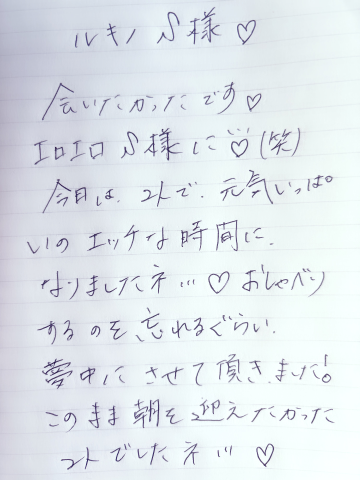 ルキノ S様♡
会いたかったです♡
エロエロ S様に♡(笑)
今日は、2人で、元気いっぱ
いの エッチな時間に、
なりましたネ…♡ おしゃべり
するのを 忘れるぐらい、
夢中に させて 頂きました!
このまま 朝を 迎えたかった
2人でしたネ…♡